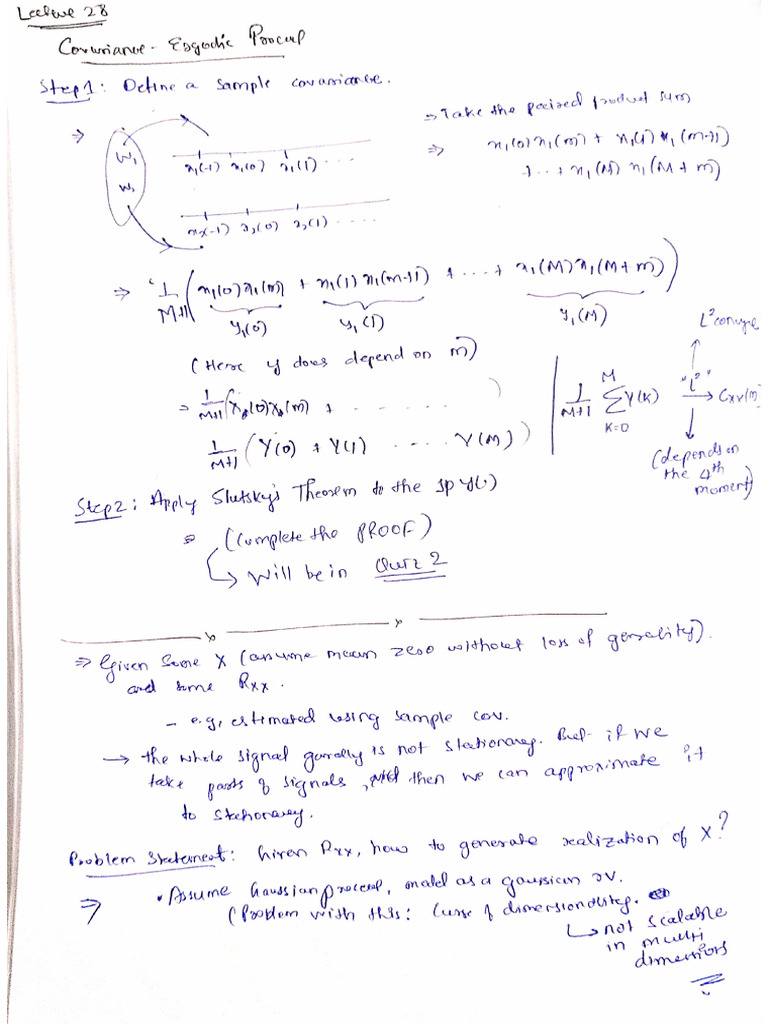 Lecture 28
Covariance - Ergodic Process
Step 1: Define a sample covariance.
⇒ Take the paired product sum
⇒ W₁ x₁(-1) x₁(0) x₁(1) ....
⇒ x₁(0)x₁(m) + x₁(1)x₁(m+1)
+ .. + x₁(M) x₁(M+m)
W₂ x₂(-1) x₂(0) x₂(1) .....
⇒ 1/(M+1) (x₁(0)x₁(m) + x₁(1)x₁(m+1) + ... + x₁(M)x₁(M+m))
y₁(0) y₁(1) y₁(M)
(Here y does depend on m)
L² converge
⇒ 1/(M+1) (X(0)X(m) + ........)
1/(M+1) ∑_{K=0}^{M} Y(K) "L²" → C_XX(m)
1/(M+1) (Y(0) + Y(1) ..... Y(M))
(depends on
the 4th
moment)
Step 2: Apply Slutsky's Theorem to the SP Y(.)
⇒ (Complete the PROOF)
↳ Will be in Quiz 2
⇒ Given some X (assume mean zero without loss of generality).
and some Rxx.
- e.g, estimated using sample cov.
→ the whole signal generally is not stationary. But if we
take parts of signals, then we can approximate it
to stationary.
Problem Statement: Given Rxx, how to generate realization of X?
⇒ • Assume Gaussian process, model as a gaussian rv.
(Problem with this: Curse of dimensionality.
↳ not scalable
in multi
dimensions